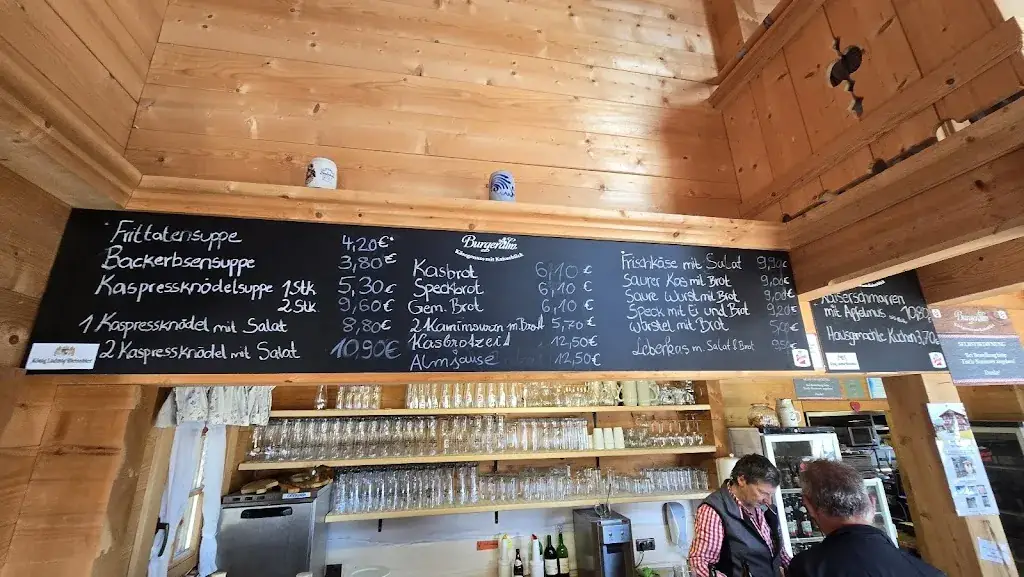 Frittatensuppe 4,20€
Backerbsensuppe 3,80€
Kaspressknödelsuppe 1 Stk 5,30€
2 Stk. 9,60€
1 Kaspressknödel mit Salat 8,80€
2 Kaspressknödel mit Salat 10,90€
König Ludwig Weissbier
Burgeralm
Käsegenuss mit Kaiserblick
Kasbrot 6,10€
Speckbrot 6,10€
Gem. Brot 6,10€
2 Kaminwurzen m. Brot 5,70€
Kasbrotzeit 12,50€
Almjause 12,50€
Frischkäse mit Salat 9,90€
Saurer Kas mit Brot 9,00€
Saure Wurst mit Brot 9,00€
Speck mit Ei und Brot 9,20€
Würstel mit Brot
Leberkas m. Salat & Brot
Kaiserschmarren
mit Apfelmus 10,80
Hausgmachte Kuchen 3,70
Burgeralm
SELBSTBEDIENUNG
Danke!